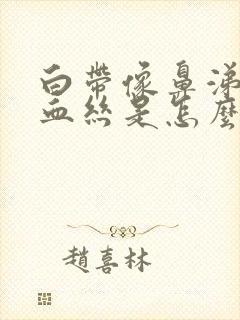 白帶像鼻涕
血絲是怎麼
趙喜林